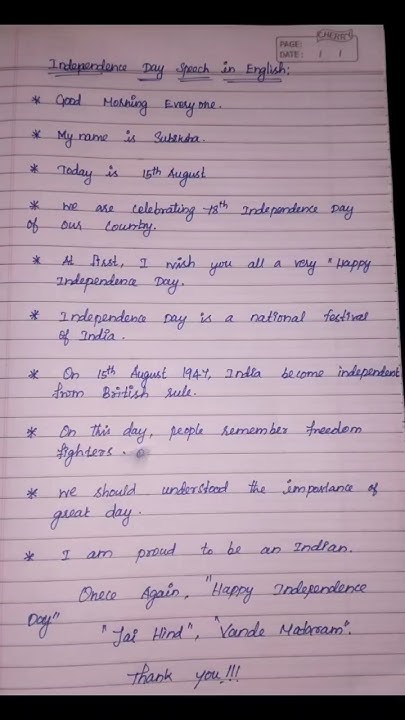 CHERRY
PAGE:
DATE: / /
Independence Day Speech in English:
* Good Morning Everyone.
* My name is Subeksha.
* Today is 15th August
* We are celebrating 78th Independence Day
of our country.
* At first, I wish you all a very "Happy
Independence Day.
* Independence Day is a national festival
of India.
* On 15th August 1947, India become independent
from British rule.
* On this day, people remember freedom
fighters.
* We should understood the importance of
great day.
* I am proud to be an Indian.
Onece Again, "Happy Independence
Day" "Jai Hind", "Vande Mataram".
Thank you!!!